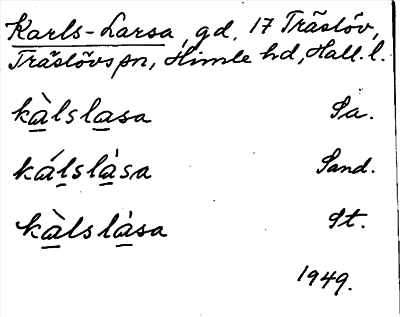 Karls-Larsa, gd. 17 Träslöv,
Träslövs sn, Himle hd, Hall. l.
kàlslasa Sa.
kálslàsa Sand.
kàlslàsa St.
1949.